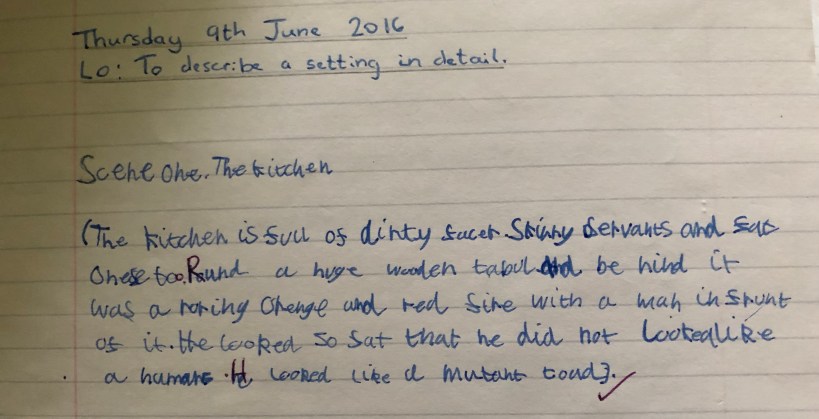 Thursday 9th June 2016
Lo: To describe a setting in detail.
Scene one. The kitchen
(The kitchen is full of dirty facer. Skinny servants and fat
ones too. Round a huge wooden tabul and be hind it
was a roring orenge and red fire with a man in frunt
of it. He looked so fat that he did not looked like
a human. He looked like a mutant toad}.